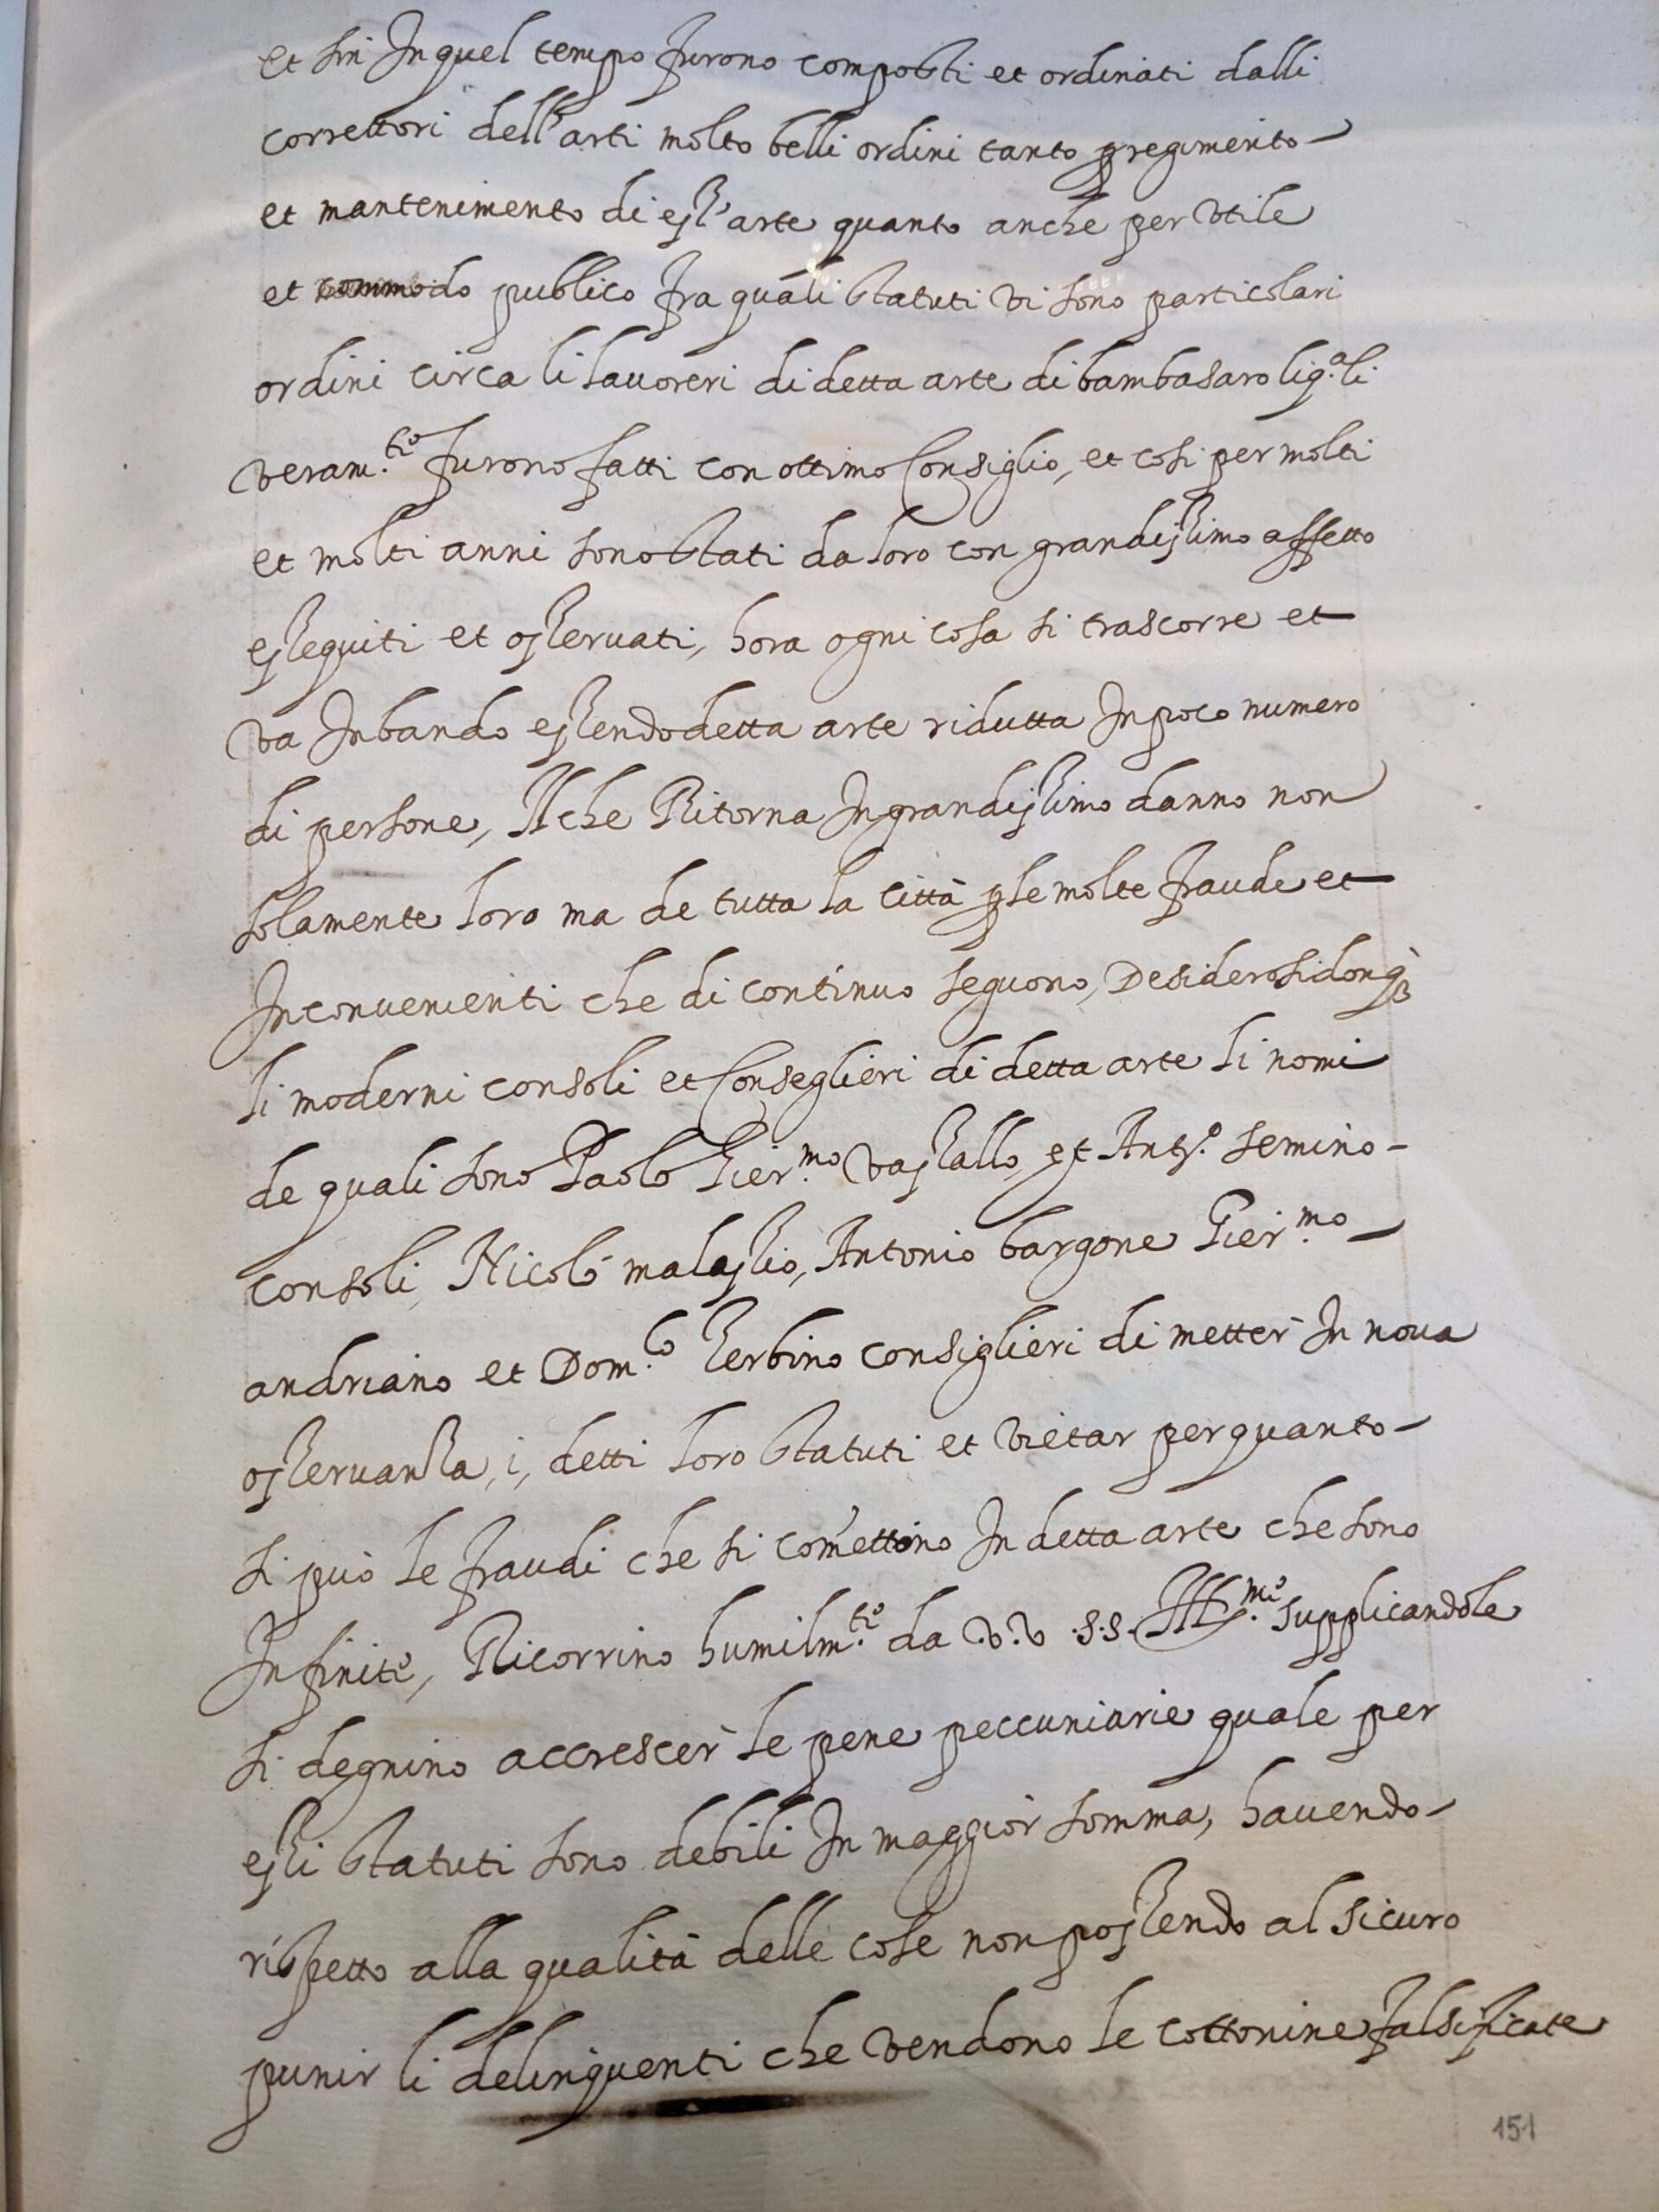 et sin In quel tempo furono composti et ordinati dalli
correttori dell'arti molto belli ordini tanto p regimento
et mantenimento di ess'arte quanto anche per utile
et commodo publico fra quali statuti vi sono particolari
ordini circa li lavoreri di detta arte di bambasaro li q.ali
veram.te furono fatti con ottimo Consiglio, et cosi per molti
et molti anni sono stati da loro con grandissimo affetto
esseguiti et osservati, hora ogni cosa si trascorre et
va In bando essendo detta arte ridutta In poco numero
di persone, Il che Ritorna In grandissimo danno non
solamente loro ma de tutta la Città p le molte fraude et
Inconvenienti che di continuo seguono, Desiderosi donq
li moderni consoli et Conseglieri di detta arte li nomi
de quali sono Paolo Gier.mo vassallo, et Ant.o semino
consoli, Nicolò malassio, Antonio bargone Gier.mo
andriano et Dom.co Zerbino consiglieri di metter In nova
osservanza, i, detti loro statuti et vietar per quanto
si può le fraudi che si comettono In detta arte che sono
Infinite, Ricorrino humilm.te da V.V .S.S. Ill.me supplicandole
si degnino accrescer le pene peccuniarie quale per
essi statuti sono debili In maggior somma, havendo
rispetto alla qualità delle cose non possendo al sicuro
punir li delinquenti che vendono le cottonine falsificate
151